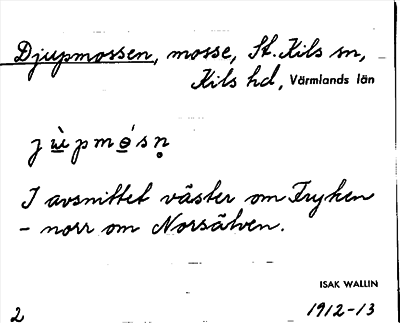 Djupmossen, mosse, St. Kils sn,
Kils hd, Värmlands län
jùpmósn̥
I avsnittet väster om Fryken
- norr om Norsälven.
ISAK WALLIN
2 1912-13